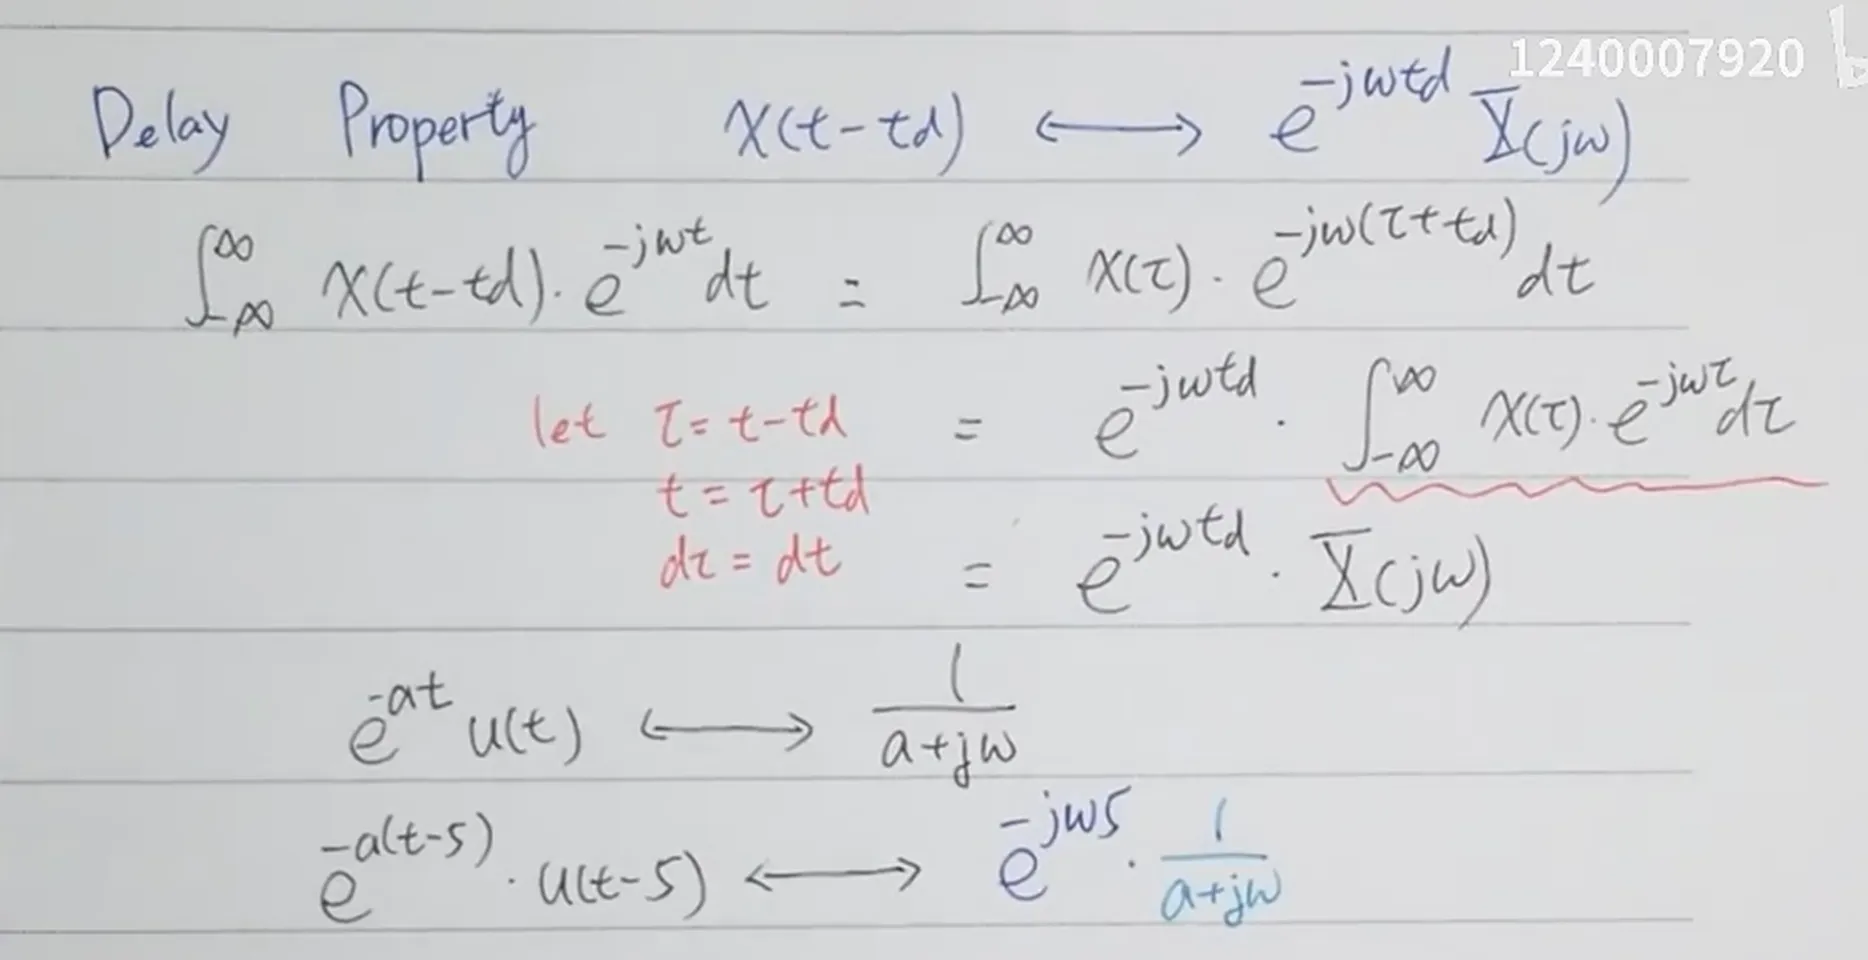 1240007920
Delay Property x(t-td) ⟷ e^{-jωtd} X(jω)
∫_{-∞}^{∞} x(t-td)·e^{-jωt} dt = ∫_{-∞}^{∞} x(τ)·e^{-jω(τ+td)} dt
let τ=t-td = e^{-jωtd}·∫_{-∞}^{∞} x(τ)·e^{-jωτ} dτ
t=τ+td
dτ=dt = e^{-jωtd}·X(jω)
e^{-at} u(t) ⟷ \frac{1}{a+jω}
e^{-a(t-5)}·u(t-5) ⟷ e^{-jω5}·\frac{1}{a+jω}